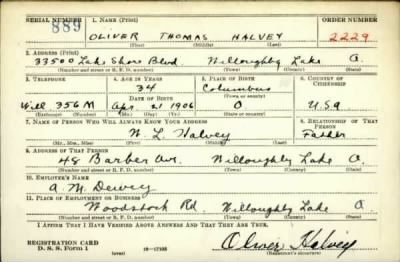 SERIAL NUMBER 1. NAME (Print) ORDER NUMBER
889 OLIVER THOMAS HALVEY 2229
(First) (Middle) (Last)
2. ADDRESS (Print)
33500 Lake Shore Blvd. Willoughby Lake O.
(Number and street or R. F. D. number) (Town) (County) (State)
3. TELEPHONE 4. AGE IN YEARS 5. PLACE OF BIRTH 6. COUNTRY OF CITIZENSHIP
34 Columbus
DATE OF BIRTH (Town or county)
Will 356M Apr 21 1906 O USA
(Exchange) (No.) (Mo.) (Day) (Yr.) (State or country)
7. NAME OF PERSON WHO WILL ALWAYS KNOW YOUR ADDRESS 8. RELATIONSHIP OF THAT PERSON
W. L. Halvey Father
(Mr., Mrs., Miss) (First) (Middle) (Last)
9. ADDRESS OF THAT PERSON
48 Barber Ave. Willoughby Lake O.
(Number and street or R. F. D. number) (Town) (County) (State)
10. EMPLOYER'S NAME
A. M. Dewey
11. PLACE OF EMPLOYMENT OR BUSINESS
Woodstock Rd. Willoughby Lake O
(Number and street or R. F. D. number) (Town) (County) (State)
I AFFIRM THAT I HAVE VERIFIED ABOVE ANSWERS AND THAT THEY ARE TRUE.
REGISTRATION CARD
D. S. S. Form 1 (over) 16—17105 Oliver Halvey
(Registrant's signature)